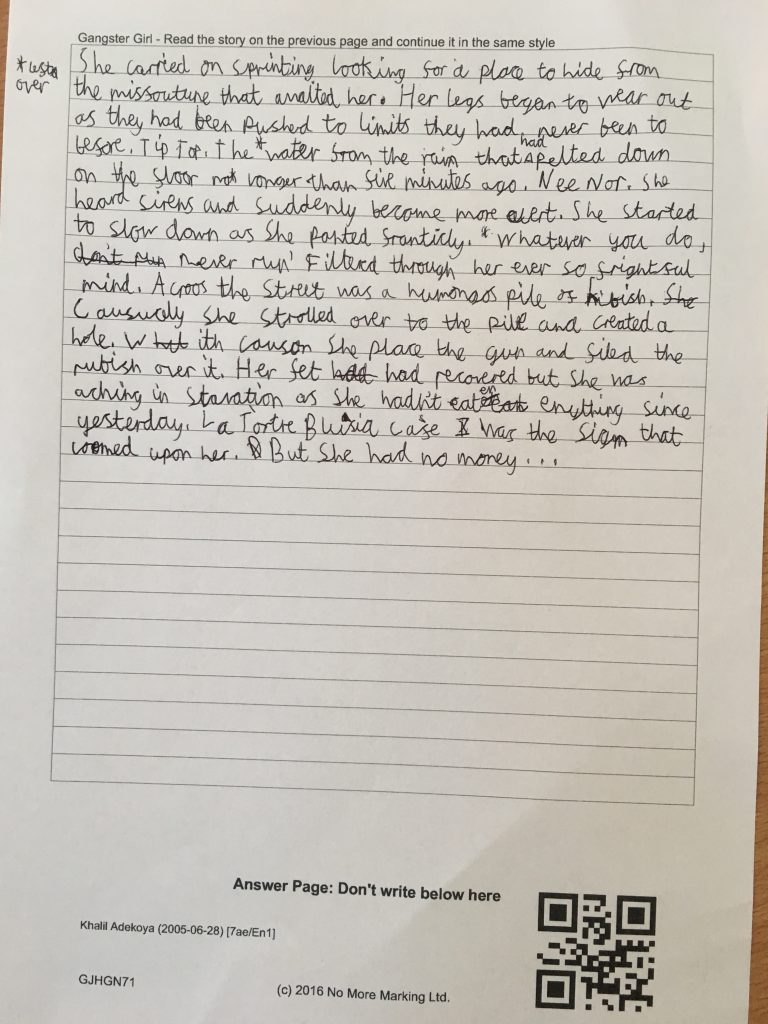 Gangster Girl - Read the story on the previous page and continue it in the same style
She carried on sprinting looking for a place to hide from
*left
over
the missouture that awaited her. Her legs began to wear out
as they had been pushed to limits they had never been to
before. Tip Top. The * water from the rain that had pelted down
on the floor not longer than five minutes ago. Nee Nor. She
heard sirens and suddenly become more alert. She started
to slow down as she panted franticly. "Whatever you do,
don't run never run' Filterd through her ever so frightful
mind. Across the street was a humongos pile of rubish. She
Causualy she strolled over to the pile and created a
hole. With causon she place the gun and filed the
rubish over it. Her fet had had recovered but she was
aching in starvation as she hadn't eaten enything since
yesterday. La Tortre Bluisia cafe was the sign that
loomed upon her. But she had no money...
Answer Page: Don't write below here
Khalil Adekoya (2005-06-28) [7ae/En1]
GJHGN71
(c) 2016 No More Marking Ltd.